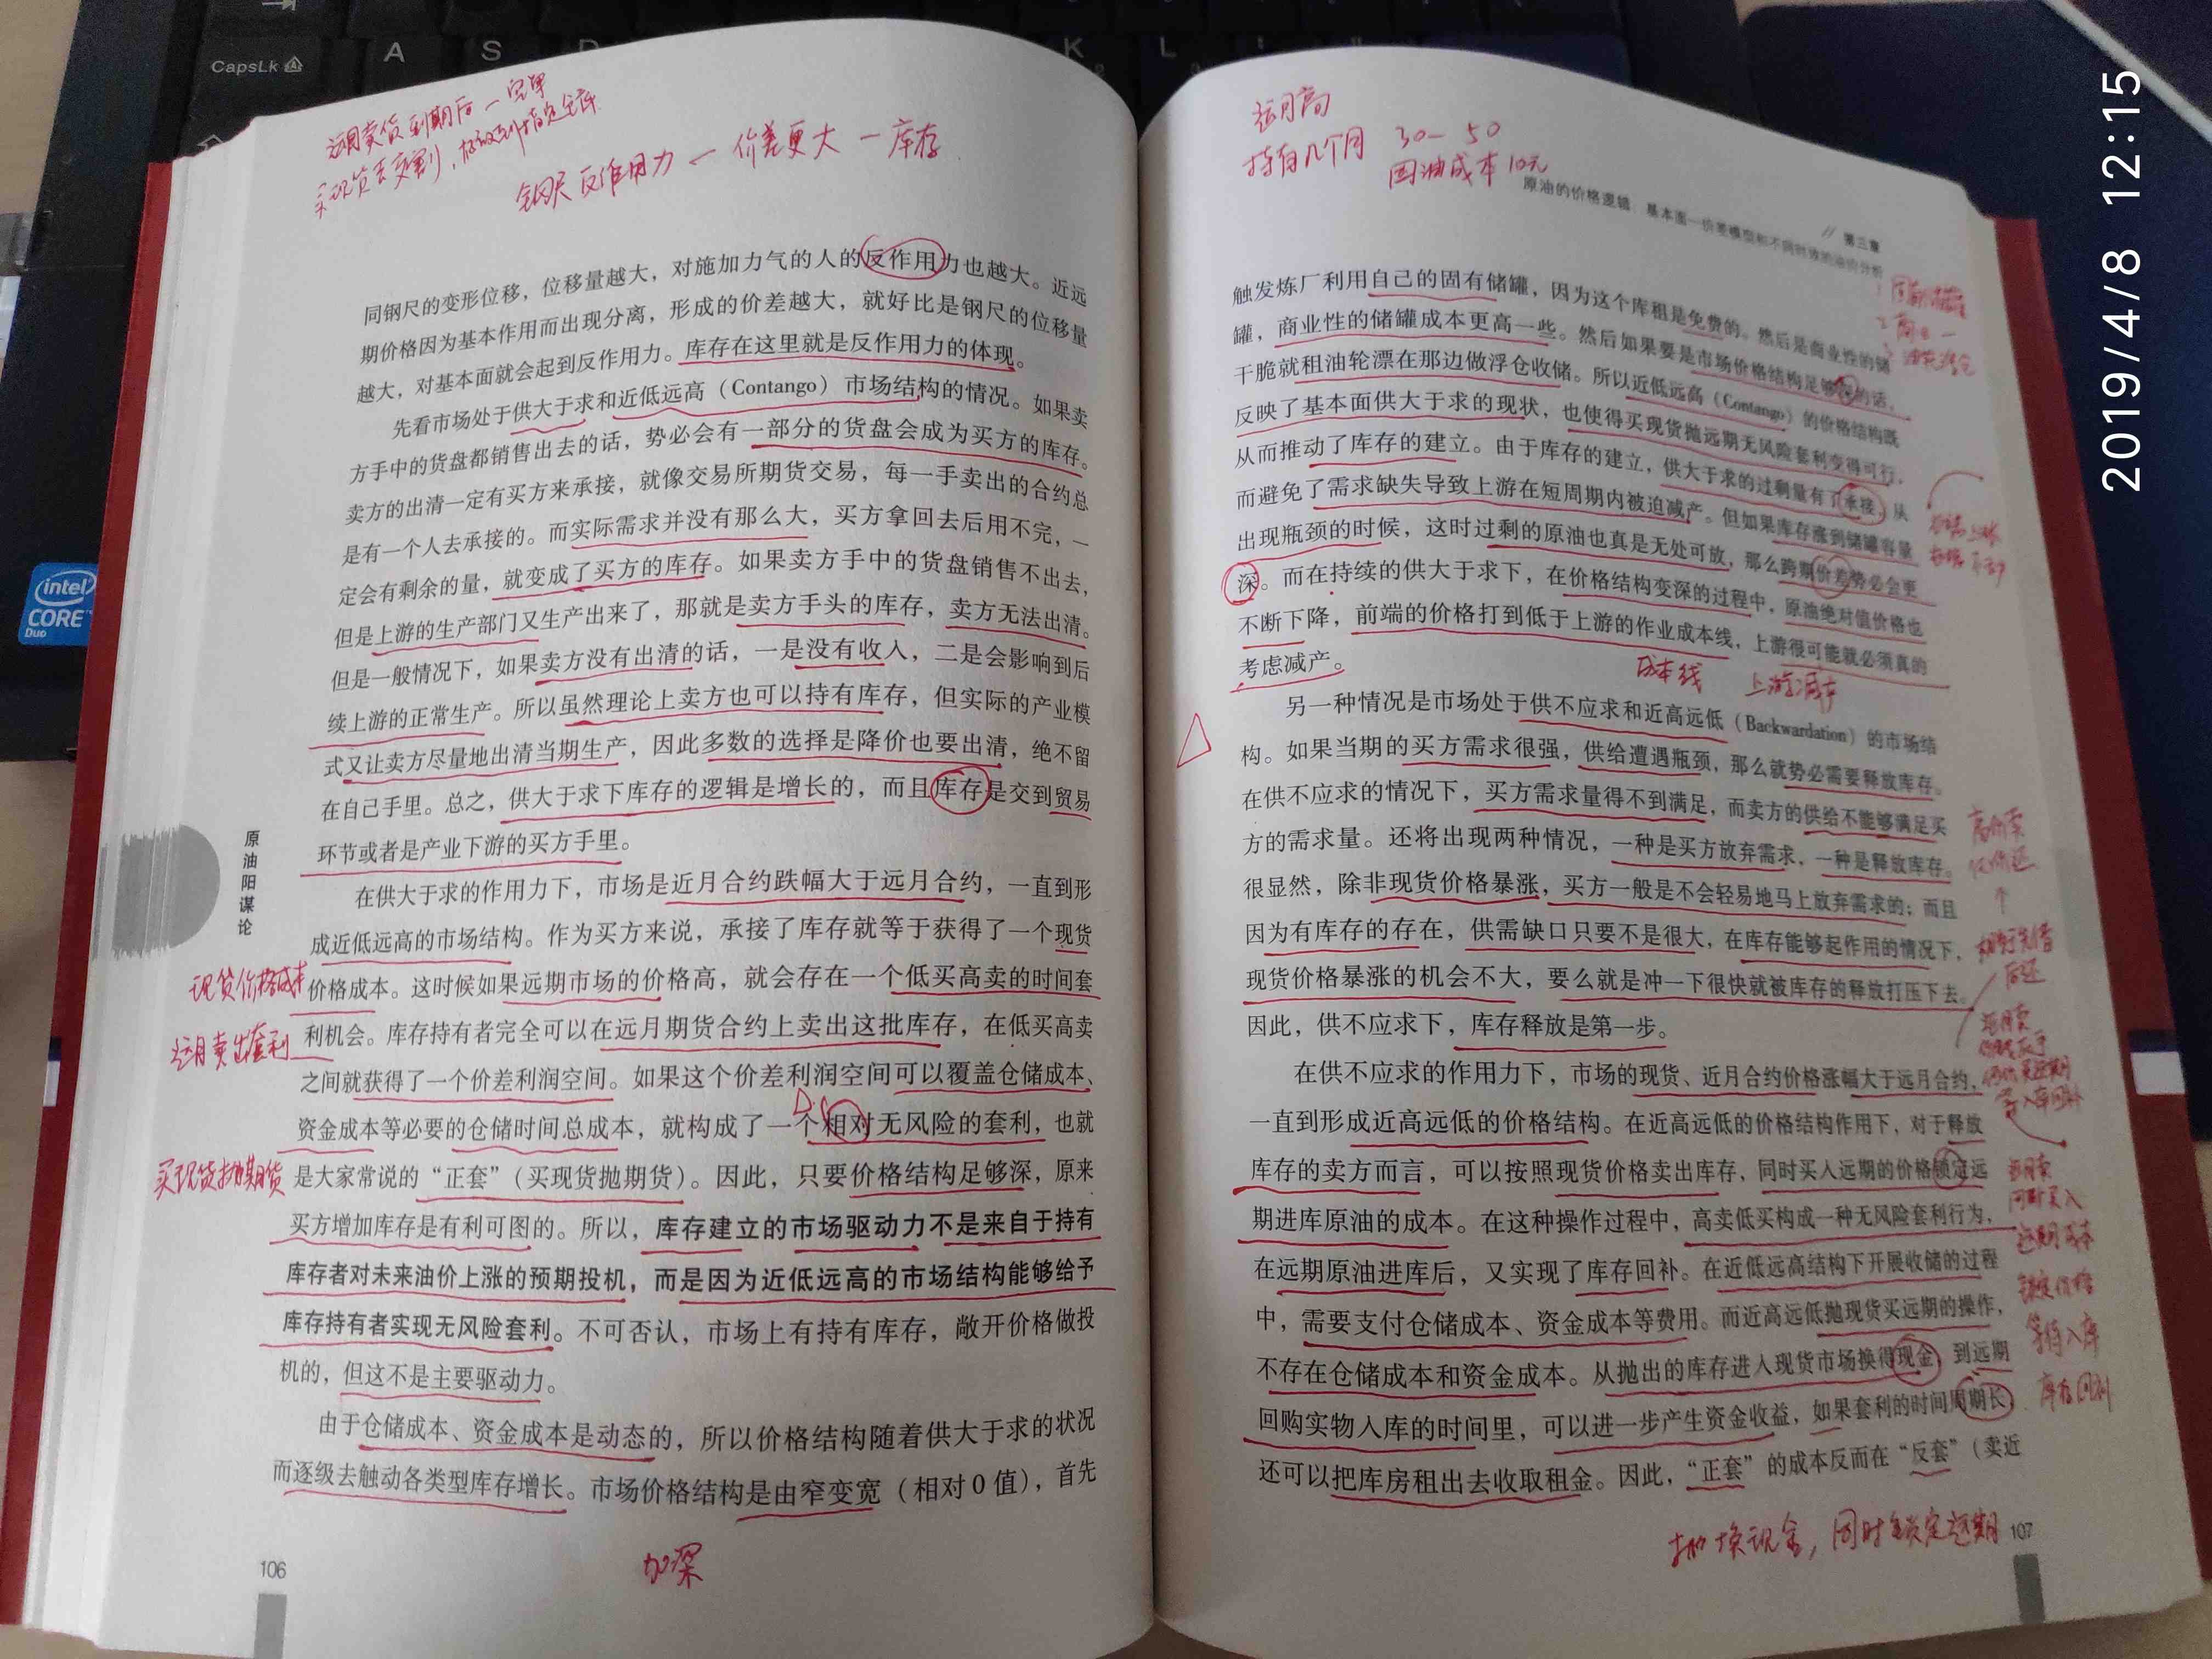 CapsLk
A
S
D
K
L
intel
CORE
Duo
2019/4/8 12:15
远月卖货到期后一定单
钢尺反作用力一价差更大一库存
同钢尺的变形位移，位移量越大，对施加力气的人的反作用力也越大。近远
期价格因为基本作用而出现分离，形成的价差越大，就好比是钢尺的位移量
越大，对基本面就会起到反作用力。库存在这里就是反作用力的体现。
先看市场处于供大于求和近低远高（Contango）市场结构的情况。如果卖
方手中的货盘都销售出去的话，势必会有一部分的货盘会成为买方的库存。
卖方的出清一定有买方来承接，就像交易所期货交易，每一手卖出的合约总
是有一个人去承接的。而实际需求并没有那么大，买方拿回去后用不完，一
定会有剩余的量，就变成了买方的库存。如果卖方手中的货盘销售不出去，
但是上游的生产部门又生产出来了，那就是卖方手头的库存，卖方无法出清。
但是一般情况下，如果卖方没有出清的话，一是没有收入，二是会影响到后
续上游的正常生产。所以虽然理论上卖方也可以持有库存，但实际的产业模
式又让卖方尽量地出清当期生产，因此多数的选择是降价也要出清，绝不留
在自己手里。总之，供大于求下库存的逻辑是增长的，而且库存是交到贸易
环节或者是产业下游的买方手里。
在供大于求的作用力下，市场是近月合约跌幅大于远月合约，一直到形
成近低远高的市场结构。作为买方来说，承接了库存就等于获得了一个现货
价格成本。这时候如果远期市场的价格高，就会存在一个低买高卖的时间套
利机会。库存持有者完全可以在远月期货合约上卖出这批库存，在低买高卖
之间就获得了一个价差利润空间。如果这个价差利润空间可以覆盖仓储成本、
资金成本等必要的仓储时间总成本，就构成了一个相对无风险的套利，也就
是大家常说的“正套”（买现货抛期货）。因此，只要价格结构足够深，原来
买方增加库存是有利可图的。所以，库存建立的市场驱动力不是来自于持有
库存者对未来油价上涨的预期投机，而是因为近低远高的市场结构能够给予
库存持有者实现无风险套利。不可否认，市场上有持有库存，敞开价格做投
机的，但这不是主要驱动力。
由于仓储成本、资金成本是动态的，所以价格结构随着供大于求的状况
而逐级去触动各类型库存增长。市场价格结构是由窄变宽（相对0值），首先
现货价格成本
远月卖出套利
买现货抛期货
加深
原油阳谋论
106
远月高
持有几个月 30—50
囤油成本10元
// 第三章
原油的价格逻辑：基本面—价差模型和不同时效的油价分析
触发炼厂利用自己的固有储罐，因为这个库租是免费的。然后是商业性的储
罐，商业性的储罐成本更高一些。然后如果要是市场价格结构足够深的话，
干脆就租油轮漂在那边做浮仓收储。所以近低远高（Contango）的价格结构既
反映了基本面供大于求的现状，也使得买现货抛远期无风险套利变得可行，
从而推动了库存的建立。由于库存的建立，供大于求的过剩量有了承接，从
而避免了需求缺失导致上游在短周期内被迫减产。但如果库存涨到储罐容量
出现瓶颈的时候，这时过剩的原油也真是无处可放，那么跨期价差势必会更
深。而在持续的供大于求下，在价格结构变深的过程中，原油绝对值价格也
不断下降，前端的价格打到低于上游的作业成本线，上游很可能就必须真的
考虑减产。
成本线 上游减产
另一种情况是市场处于供不应求和近高远低（Backwardation）的市场结
构。如果当期的买方需求很强，供给遭遇瓶颈，那么就势必需要释放库存。
在供不应求的情况下，买方需求量得不到满足，而卖方的供给不能够满足买
方的需求量。还将出现两种情况，一种是买方放弃需求，一种是释放库存。
很显然，除非现货价格暴涨，买方一般是不会轻易地马上放弃需求的；而且
因为有库存的存在，供需缺口只要不是很大，在库存能够起作用的情况下，
现货价格暴涨的机会不大，要么就是冲一下很快就被库存的释放打压下去。
因此，供不应求下，库存释放是第一步。
在供不应求的作用力下，市场的现货、近月合约价格涨幅大于远月合约，
一直到形成近高远低的价格结构。在近高远低的价格结构作用下，对于释放
库存的卖方而言，可以按照现货价格卖出库存，同时买入远期的价格锁定远
期进库原油的成本。在这种操作过程中，高卖低买构成一种无风险套利行为，
在远期原油进库后，又实现了库存回补。在近低远高结构下开展收储的过程
中，需要支付仓储成本、资金成本等费用。而近高远低抛现货买远期的操作，
不存在仓储成本和资金成本。从抛出的库存进入现货市场换得现金，到远期
回购实物入库的时间里，可以进一步产生资金收益，如果套利的时间周期长，
还可以把库房租出去收取租金。因此，“正套”的成本反而在“反套”（卖近
高价卖
低价还
同时买入
远期成本
锁定价格
等待入库
抛换现金，同时锁定远期
107